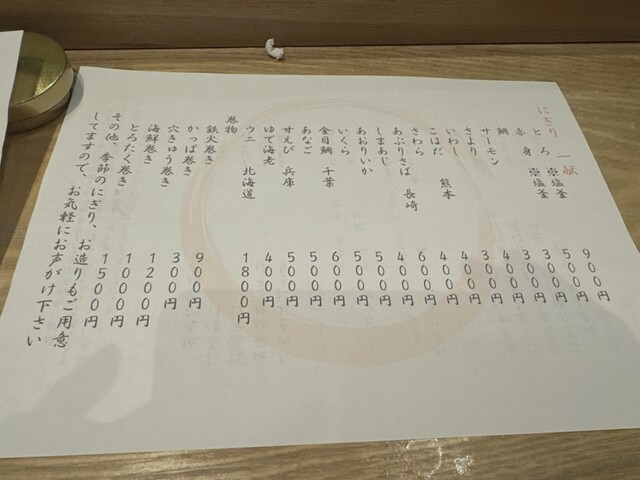 にぎり 一献
とろ ※塩釜 900円
赤身 ※塩釜 500円
鯛 300円
サーモン 300円
さより 400円
いわし 300円
こはだ 熊本 400円
さわら 400円
あぶりさば 長崎 600円
しまあじ 400円
あおりいか 500円
いくら 500円
金目鯛 千葉 600円
あなご 500円
甘えび 兵庫 500円
ゆで海老 400円
ウニ 北海道 1800円
巻物
鉄火巻き 900円
かっぱ巻き 300円
穴きゅう巻き 1200円
海鮮巻き 1000円
とろたく巻き 1500円
その他、季節のにぎり、お造りもご用意
してますので、お気軽にお声がけ下さい